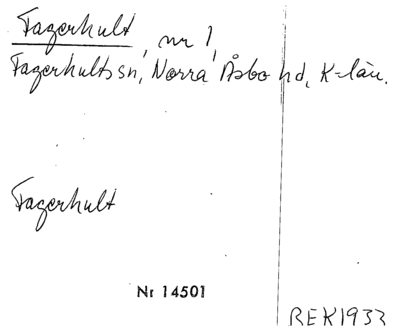 Fagerhult, nr 1,
Fagerhults sn, Norra Åsbo hd, K-län.
Fagerhult
Nr 14501
REK1933